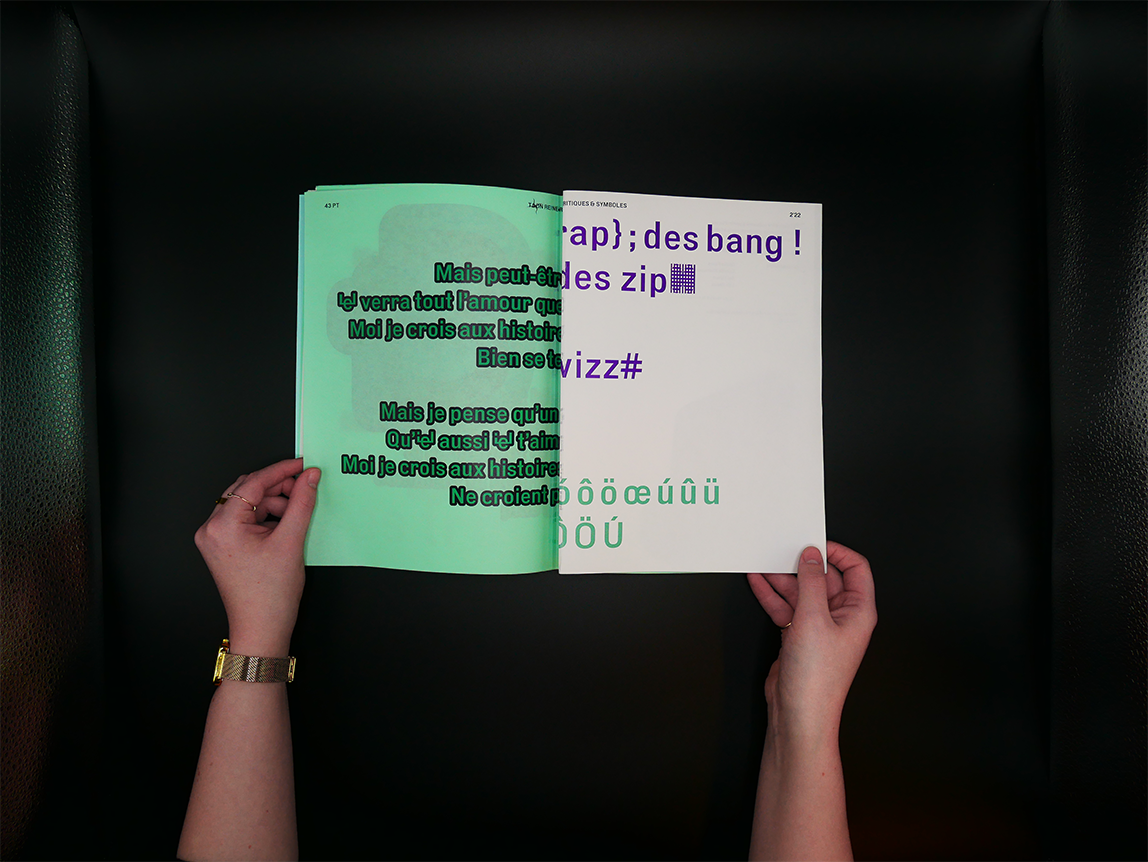 43 PT
Mais peut-êtr
iel verra tout l'amour que
Moi je crois aux histoire
Bien se te
Mais je pense qu'un
Qu'iel aussi iel t'aim
Moi je crois aux histoires
Ne croient p
RITIQUES & SYMBOLES
2'22
rap};des bang !
des zip
vizz#
óôöœúûü
ÔÖÚ